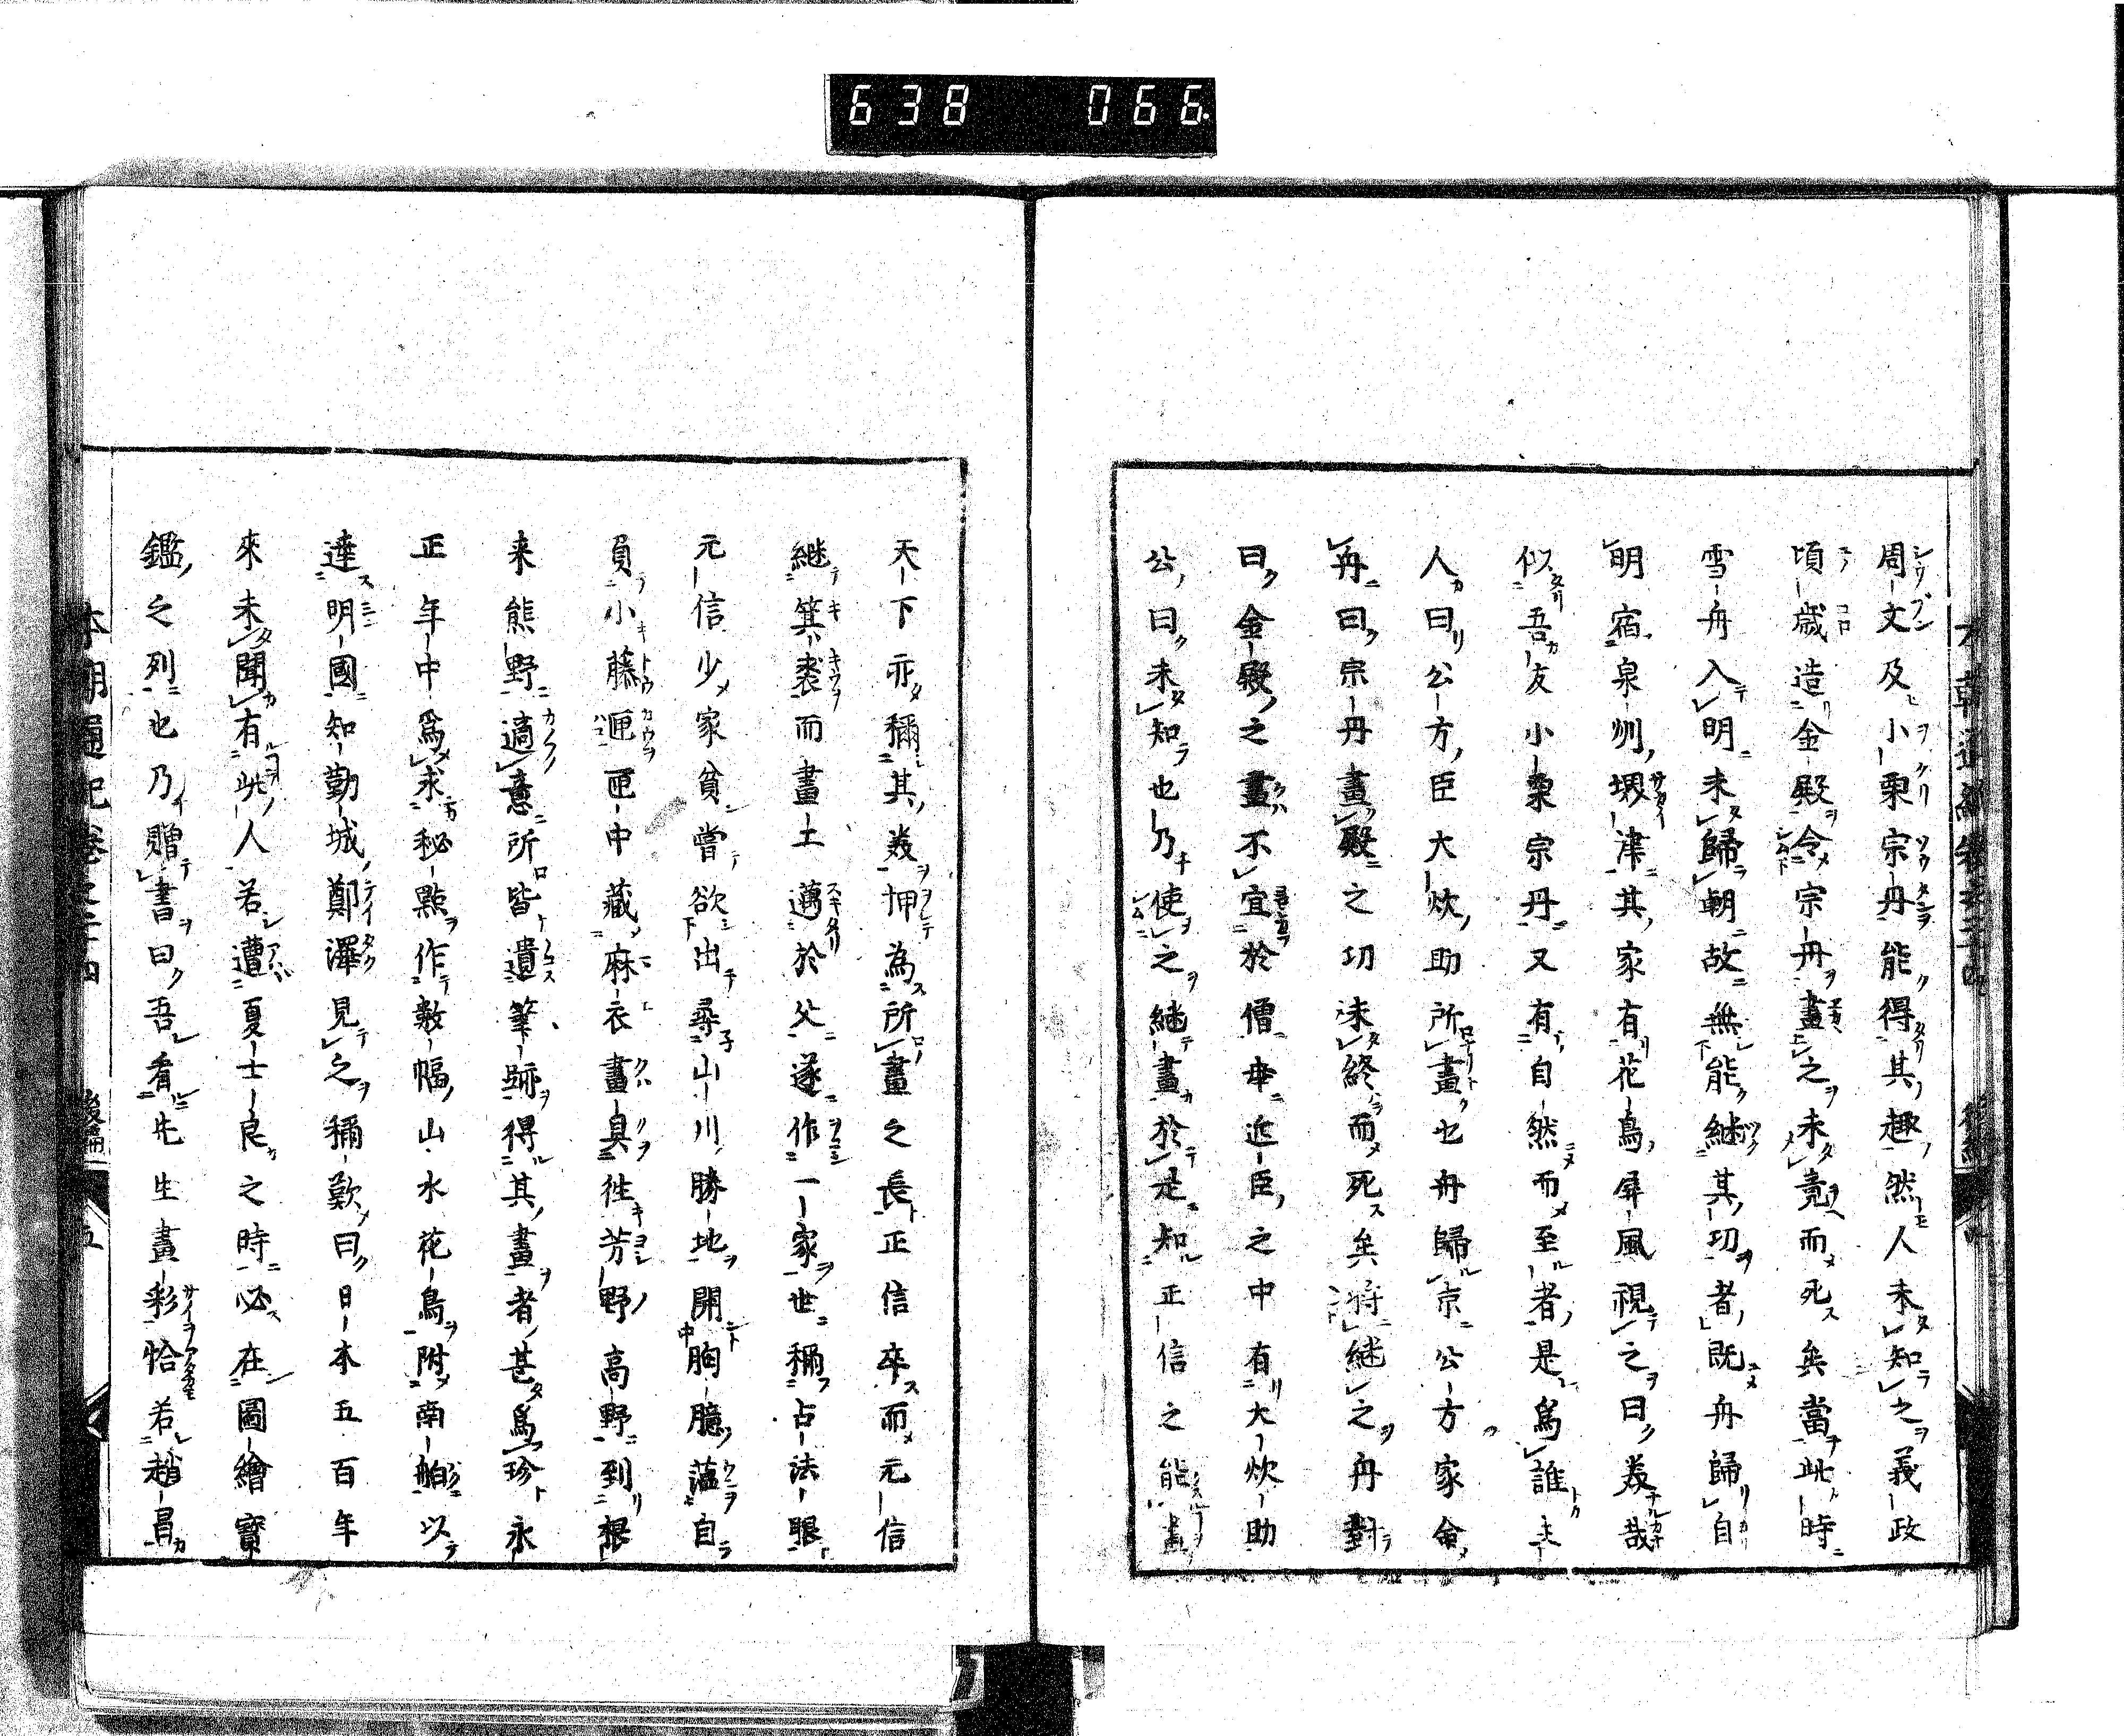 638 066
周文及小栗宗丹能得其趣然人未知之義政
頃歳造金殿令宗丹畫之未竟而死矣當此時
雪舟入明未歸朝故無能継其功者既舟歸自
明宿泉州堺津其家有花鳥屏風視之曰美哉
似吾友小栗宗丹又有自然而至者是爲誰主
人曰公方臣大炊助所畫也舟歸京公方家命
舟曰宗丹畫殿之功未終而死矣将継之舟對
曰金殿之畫不宜於僧幸近臣之中有大炊助
公曰未知也乃使之継畫於是知正信之能畫
天下亦稱其美押為所畫之長正信卒而元信
継箕裘而畫土邁於父遂作一家世稱占法眼
元信少家貧嘗欲出尋山川勝地開胸臆薀自
負小藤匣匣中藏麻衣畫具往芳野高野到根
来熊野適意所皆遺筆跡得其畫者甚爲珍永
正年中爲求秘點作數幅山水花鳥附南舶以
達明國知勤城鄭澤見之稱歎曰日本五百年
來未聞有此人若遭夏士良之時必在圖繪寳
鑑之列也乃贈書曰吾看先生畫彩恰若趙昌
本朝通紀卷之二十四 後編 五